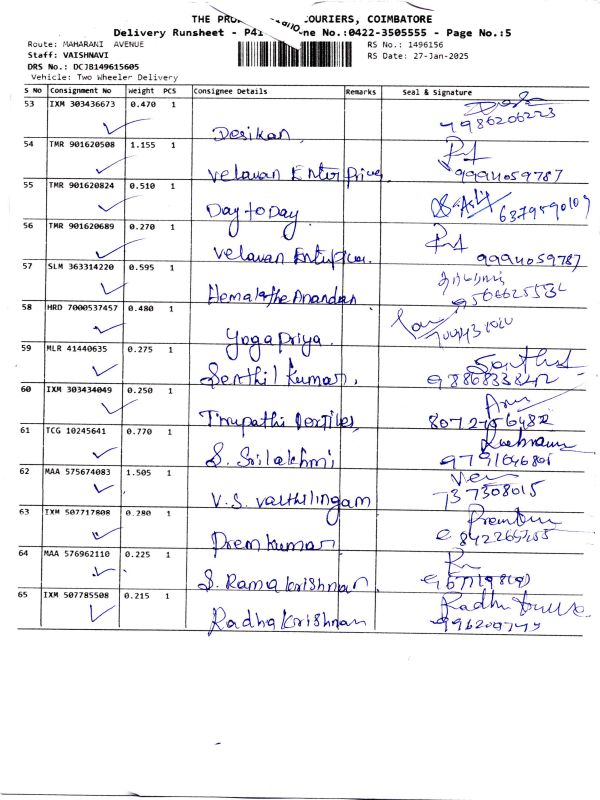 THE PRO COURIERS, COIMBATORE
Delivery Runsheet - P41 ne No.:0422-3505555 - Page No.:5
Route: MAHARANI AVENUE RS No.: 1496156
Staff: VAISHNAVI RS Date: 27-Jan-2025
DRS No.: DCJB149615605
Vehicle: Two Wheeler Delivery
S No Consignment No Weight PCS Consignee Details Remarks Seal & Signature
53 IXM 303436673 0.470 1
Desikan 7986206223
54 TMR 901620508 1.155 1
Velavan Enterprises 9994059787
55 TMR 901620824 0.510 1
Day to Day 6379590109
56 TMR 901620689 0.270 1
Velavan 9994059787
57 SLM 363314220 0.595 1
Hemalathe Anandan
58 HRD 7000537457 0.480 1
Yoga Priya
59 MLR 41440635 0.275 1
Senthil Kumar.
60 IXM 303434049 0.250 1
Tirupathi Textiles
61 TCG 10245641 0.770 1
S. Srilakshmi
62 MAA 575674083 1.505 1
V.S. Vaithilingam 737308015
63 IXM 507717808 0.280 1
Premkumar
64 MAA 576962110 0.225 1
S. Ramakrishnan
65 IXM 507785508 0.215 1
Radhakrishnan